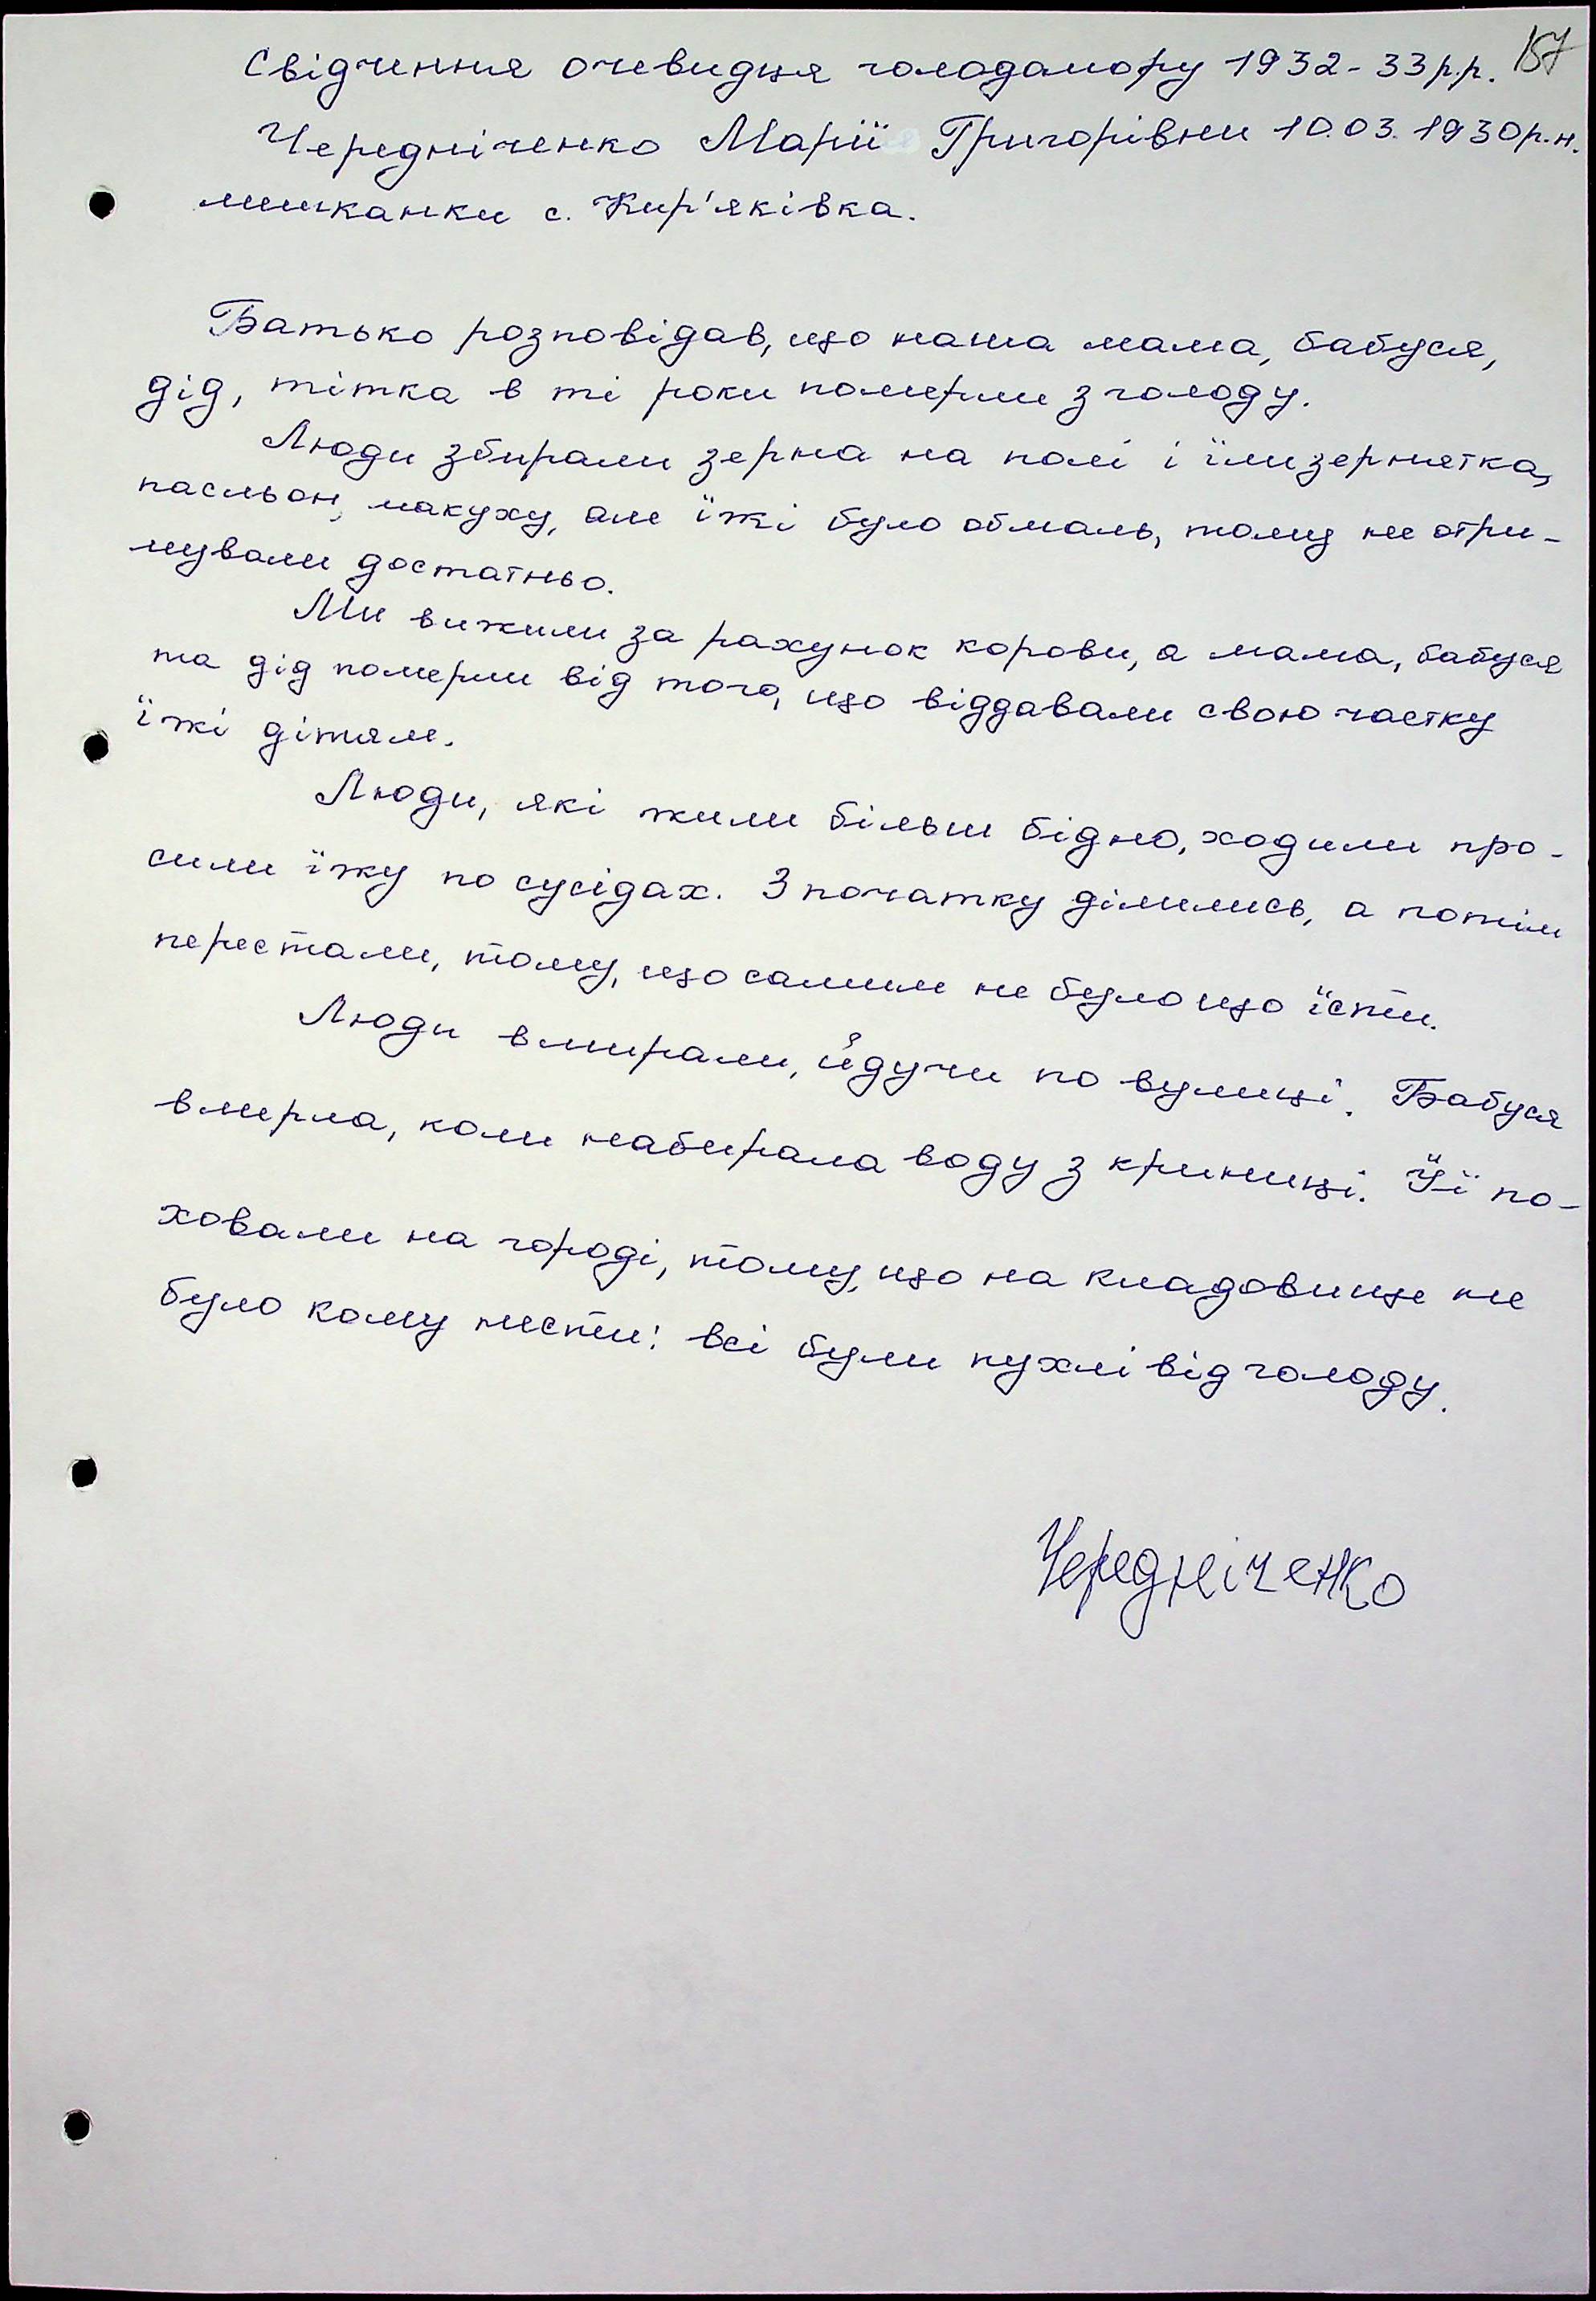 157
Свідчення очевидця голодамору 1932-33 р.р.
Чередніченко Марії Григорівни 10.03.1930р.н.
мешканки с. Кир'яківка.
Батько розповідав, що наша мама, бабуся,
дід, тітка в ті роки померли з голоду.
Люди збирали зерна на полі і їли зернятка,
пасльон, макуху, але їжі було обмаль, тому не отри-
мували достатньо.
Ми вижили за рахунок корови, а мама, бабуся
та дід померли від того, що віддавали свою частку
їжі дітям.
Люди, які жили більш бідно, ходили про-
сили їжу по сусідах. З початку ділились, а потім
перестали, тому, що самим не було що їсти.
Люди вмирали, йдучи по вулиці. Бабуся
вмерла, коли набирала воду з криниці. Її по-
ховали на городі, тому, що на кладовище не
було кому нести: всі були пухлі від голоду.
Чередніченко